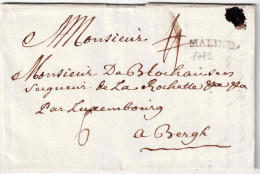 Monsieur
MALINES
1782
Monsieur De Blochausen
Seigneur de La Rochette &a &a
Par Luxembourg
6
a Bergh